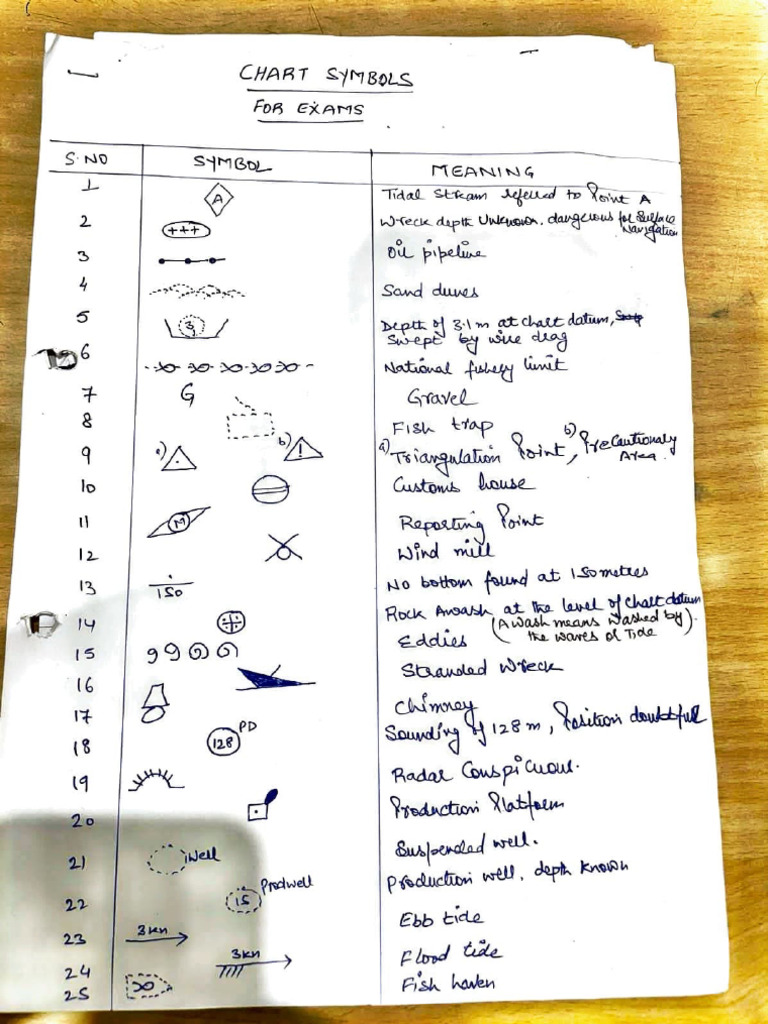 CHART SYMBOLS
FOR EXAMS
S.NO SYMBOL MEANING
1 A Tidal Stream referred to Point A
2 +++ Wreck depth Unknown. dangerous for Surface Navigation
3 Oil pipeline
4 Sand dunes
5 3₁ Depth of 3.1 m at chart datum,
Swept by wire drag
6 National fishery limit
7 G Gravel
8 Fish trap
9 a) b) ! a) Triangulation Point, b) Precautionary Area.
10 Customs house
11 M Reporting Point
12 Wind mill
13 150 No bottom found at 150 metres
14 Rock Awash at the level of Chart datum
(Awash means washed by the waves of Tide)
15 Eddies
16 Stranded Wreck
17 Chimney
18 128 PD Sounding of 128 m, Position doubtfull
19 Radar Conspicuous.
20 Production Platform
21 Well Suspended well.
22 15 Prodwell Production well, depth known
23 3kn Ebb tide
24 3kn Flood tide
25 Fish haven